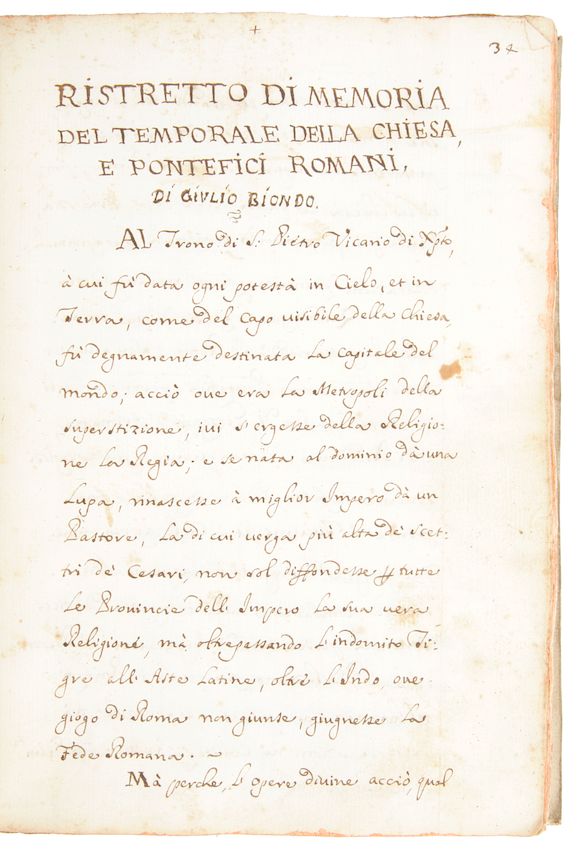 +
34
RISTRETTO DI MEMORIA
DEL TEMPORALE DELLA CHIESA,
E PONTEFICI ROMANI,
DI GIULIO BIONDO.
AL Trono di S: Pietro Vicario di Xpto,
à cui fù data ogni potestà in Cielo, et in
Terra, come del Capo visibile della Chiesa
fù degnamente destinata la Capitale del
mondo; acciò oue era la Metropoli della
superstizione, iui s'ergesse della Religio:
ne la Regia; e se nata al dominio dà una
Lupa, rinascesse à miglior Impero dà un
Pastore, la di cui verga più alta de' scet:
tri de' Cesari, non sol diffondesse p tutte
le Prouincie dell' Impero la sua vera
Religione, mà oltrepassando l'indomito Ti:
gre all' Aste Latine, oltre l'Indo, oue
giogo di Roma non giunse, giugnesse la
Fede Romana.
Mà perche, l'opere diuine acciò, qual